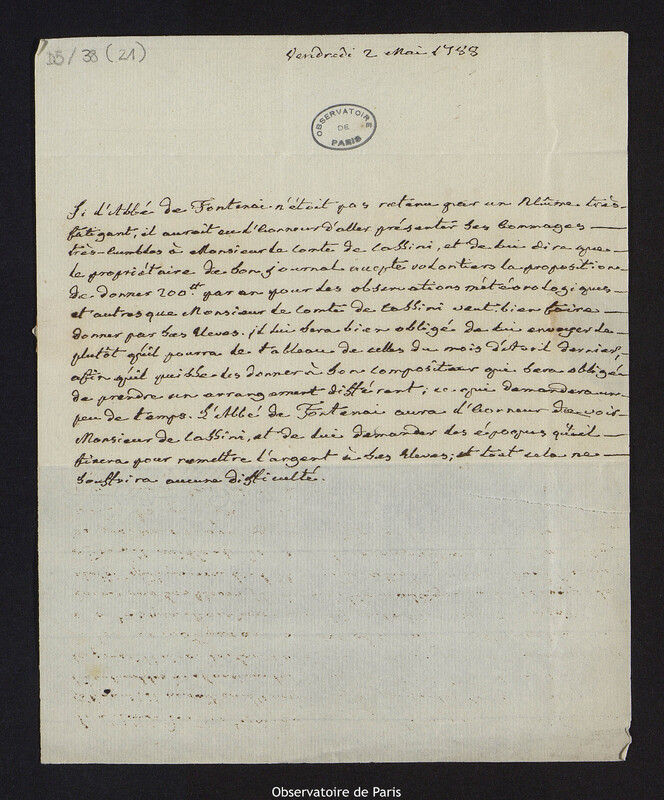 D5/38 (21)
Vendredi 2 Mai 1788
OBSERVATOIRE
DE
PARIS
Si l'Abbé de Fontenai n'étoit pas retenu par un Rhûme très-
fatigant, il auroit eu l'honneur d'aller présenter ses hommages
très-humbles à Monsieur le Comte de Cassini, et de lui dire que
le propriétaire de son journal accepte volontiers la proposition
de donner 200tt par an pour des observations météorologiques
et autres que Monsieur le Comte de Cassini veut bien faire
donner par ses Eleves. il lui sera bien obligé de lui envoyer le
plutôt qu'il pourra le tableau de celles du mois d'Avril dernier,
afin qu'il puisse les donner à son compositeur qui sera obligé
de prendre un arrangement différent; ce qui demandera un
peu de temps. L'Abbé de Fontenai aura l'honneur de voir
Monsieur de Cassini, et de lui demander les époques qu'il
fixera pour remettre l'argent à ses Eleves; et tout cela ne
souffrira aucune difficulté.
Observatoire de Paris